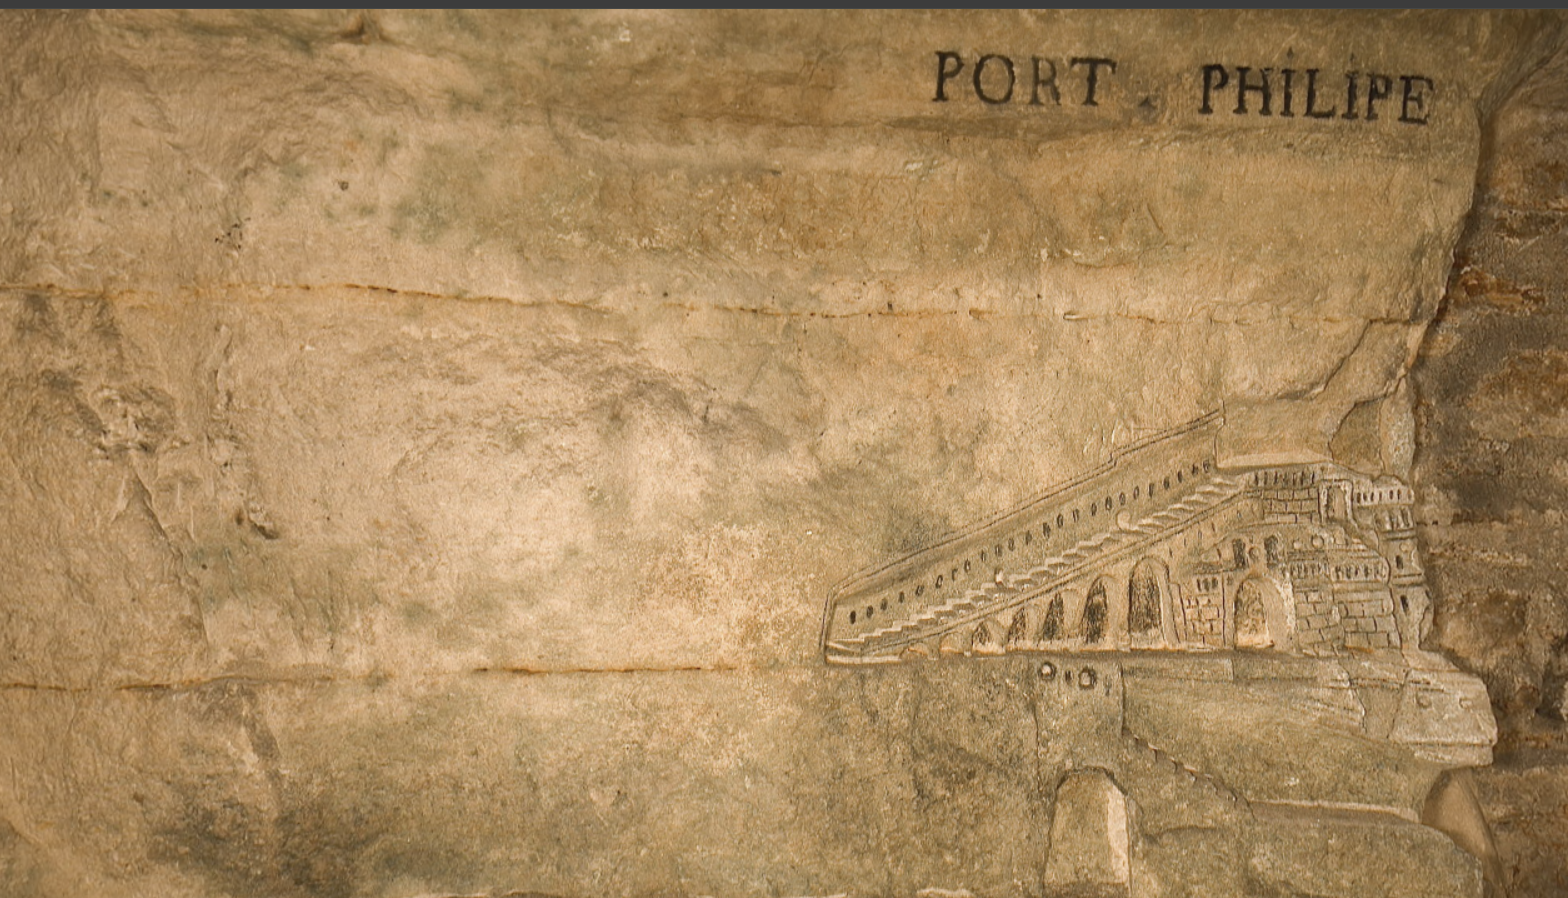 PORT . PHILIPE